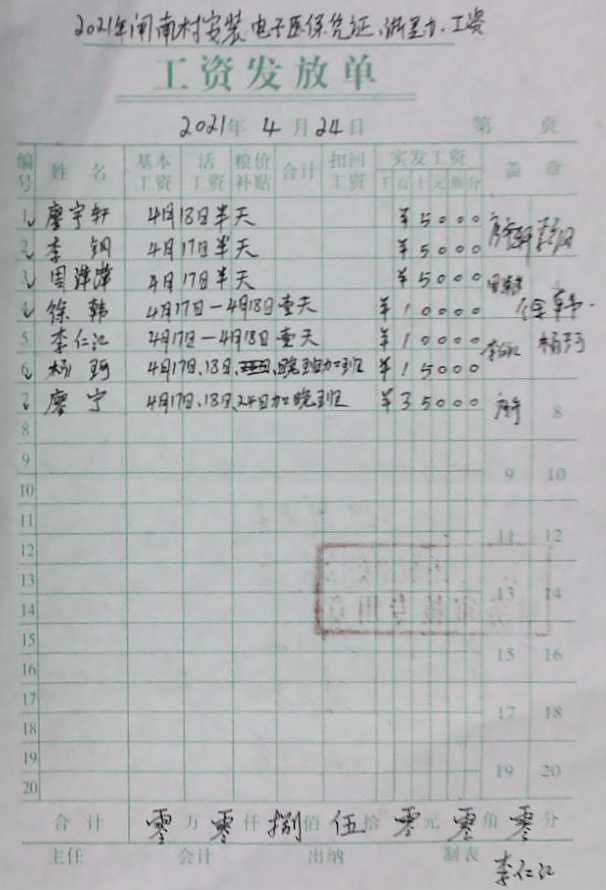 2021年闸南村安装电子医保凭证、浙里办、工资
工资发放单
2021年 4月24日 第 页
编号 姓名 基本工资 活工资 粮价补贴 合计 扣回工资 实发工资 千百十元角分 盖章
1 廖宇轩 4月18日半天 ¥5000
2 李钢 4月17日半天 ¥5000
3 周萍萍 4月17日半天 ¥5000
4 徐韩 4月17日—4月18日壹天 ¥10000 徐韩
5 李仁江 4月17日—4月18日壹天 ¥10000 李仁江 杨珂
6 杨珂 4月17日、18日、晚班加班 ¥15000
7 廖宁 4月17日、18日、24日加晚班 ¥35000 廖宁 8
8
9 9 10
10
11 11 12
12
13 13 14
14
15 15 16
16
17 17 18
18
19 19 20
20
合计 零万零仟捌佰伍拾零元零角零分
主任 会计 出纳 制表 李仁江